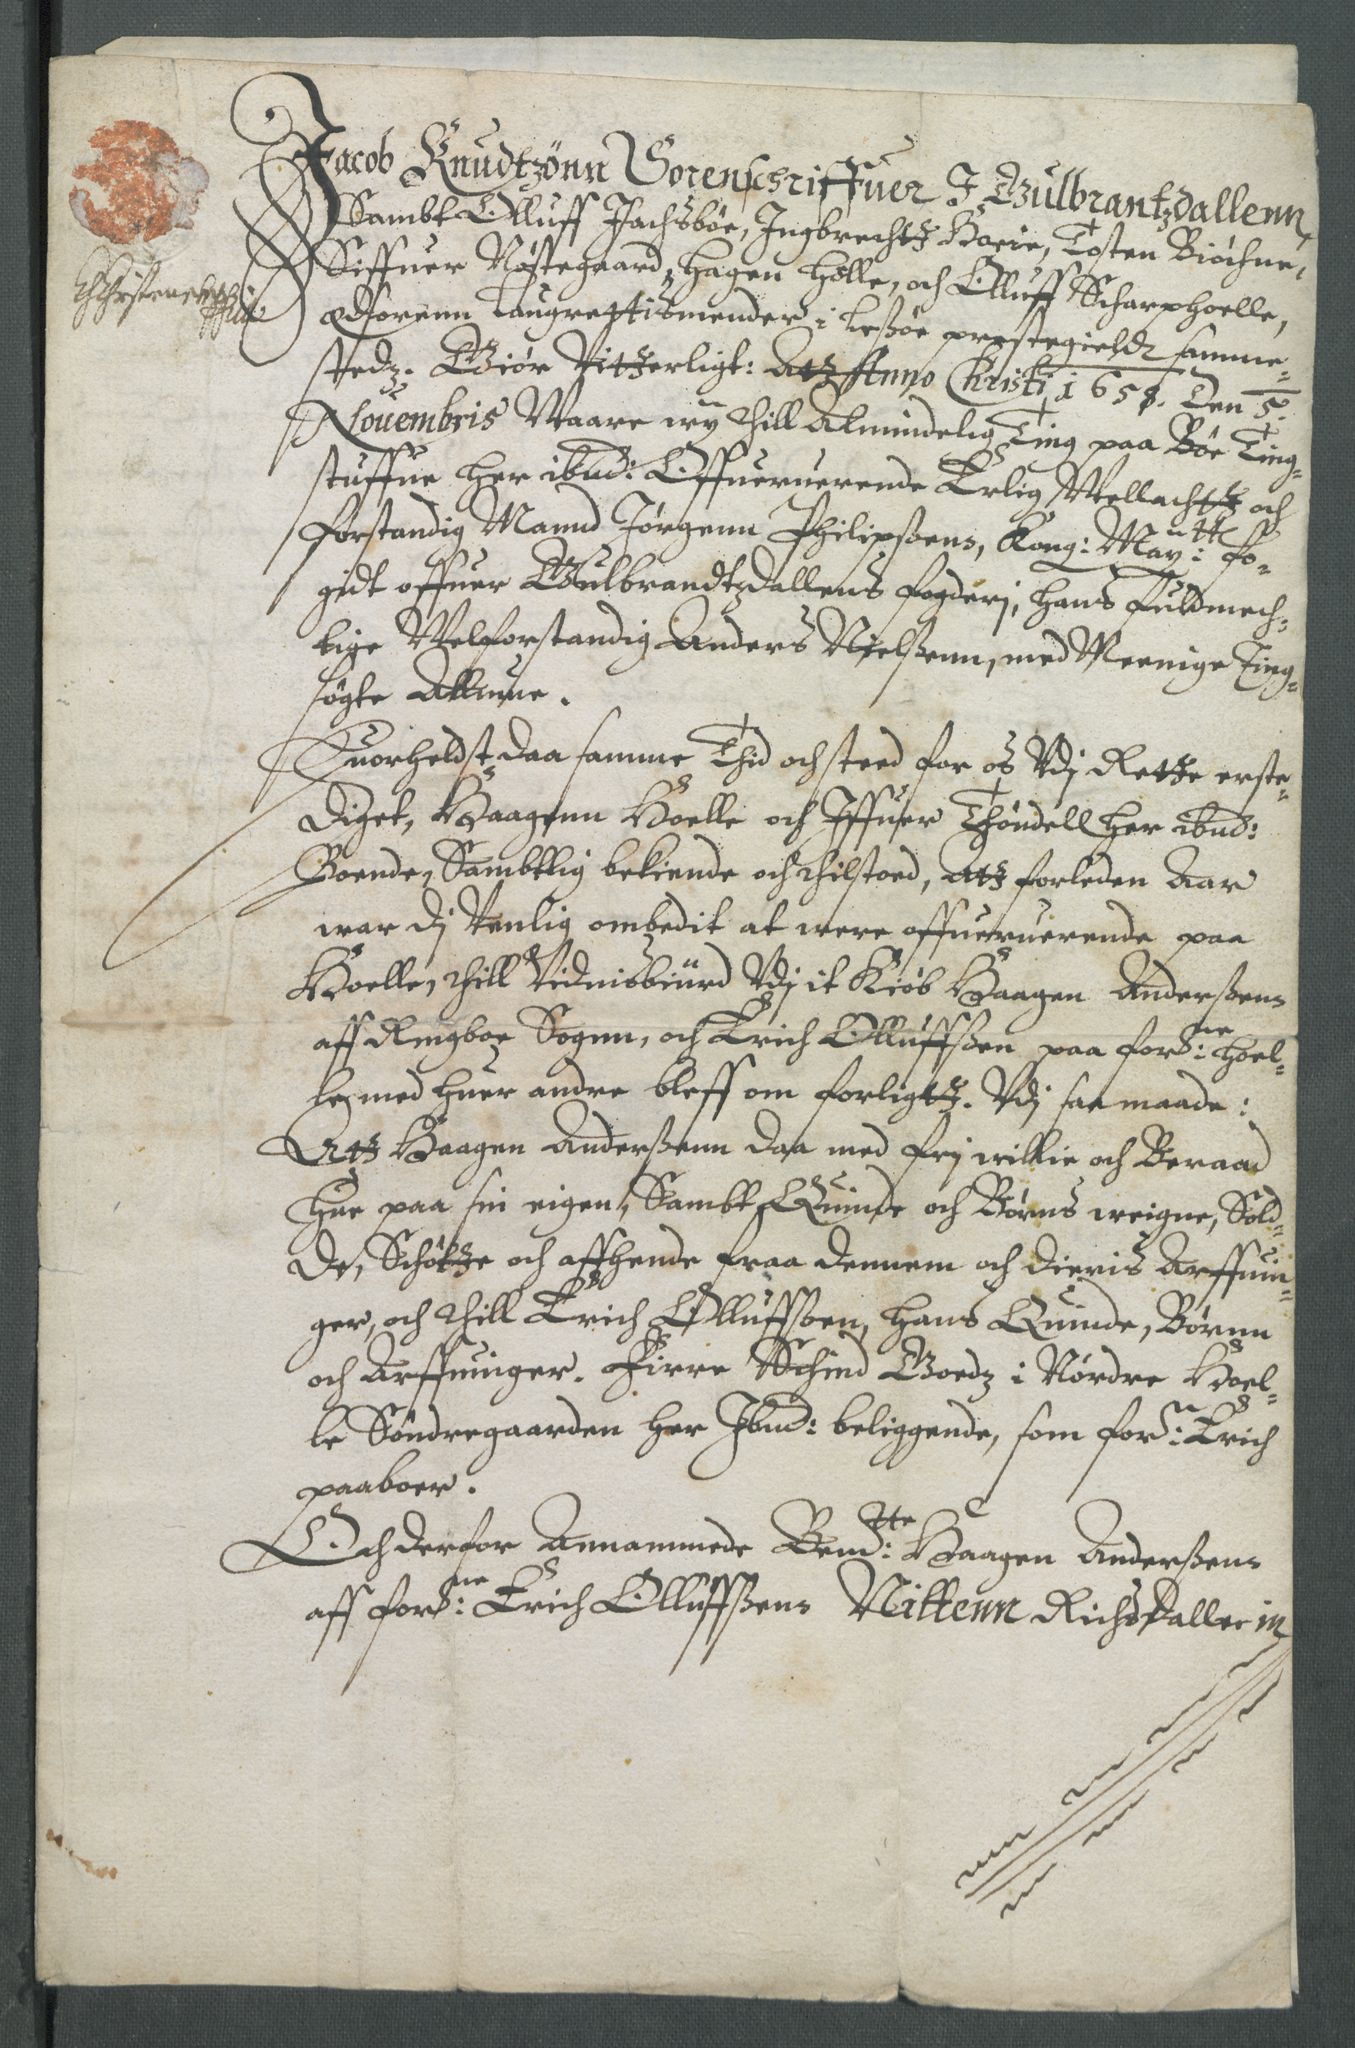 Jacob Knudtzönn Sorenschriffuer I Gulbrantzdallenn,
Sambt Olluff Jsachsböe, Ingbrecht Hoeie, Tosten Biöchne,
Siffuer Nøstegaard, Hagen Holle, och Olluff Scharphoelle,
Edsorenn Laugrettismender i Lessöe prestegieldt samme-
stedz. Giör Vitterligt: Att Anno Christi 1658. Den 5
Nouembris Waare wy thill Almindelig Ting paa Böe Ting-
stuffue her ibnd: Offueruerende Erlig Wellacht och
forstandig Mannd Jörgenn Philipssens, Kong: May:tt fo-
gidt offuer Gulbrandtzdallens fogderj, hans fuldmech-
tige Welforstandig Anders Nielssenn, med Meenige Ting-
søgte Allmue.
Huorheldst daa samme Thid och sted for os Vdj Rette erste-
diget, Haagenn Hoelle och Iffuer Thöndell her ibnd:
Boende, Sambtlig bekiende och thilstoed, Att forleden Aar
war dj Venlig ombedit at were offueruerende paa
Hoelle, thill Vidnisbiurd Vdj it Kiöb Haagen Anderssens
aff Ringboe Sognn, och Erich Olluffssen paa for:ne Hoel-
le med huer andre bleff om forligt. Vdj saa maade:
Att Haagen Anderssenn daa med frj willie och Beraad
Hue paa sin eigen, Sambt Quinde och Börns weigne, Sold-
de, Schötte och affhende fraa dennem och dieris Arffuin-
ger, och thill Erich Olluffssen, hans Quinde, Börnn
och Arffuinger. Firre Schind Goedz i Nördre Hoel-
le Söndregaarden her Ibnd: beliggende, som for:n Erich
paaboer.
Och derfor Annammede Bem:tte Haagen Anderssens
aff for:ne Erich Olluffssens Nittenn Richsdaller in